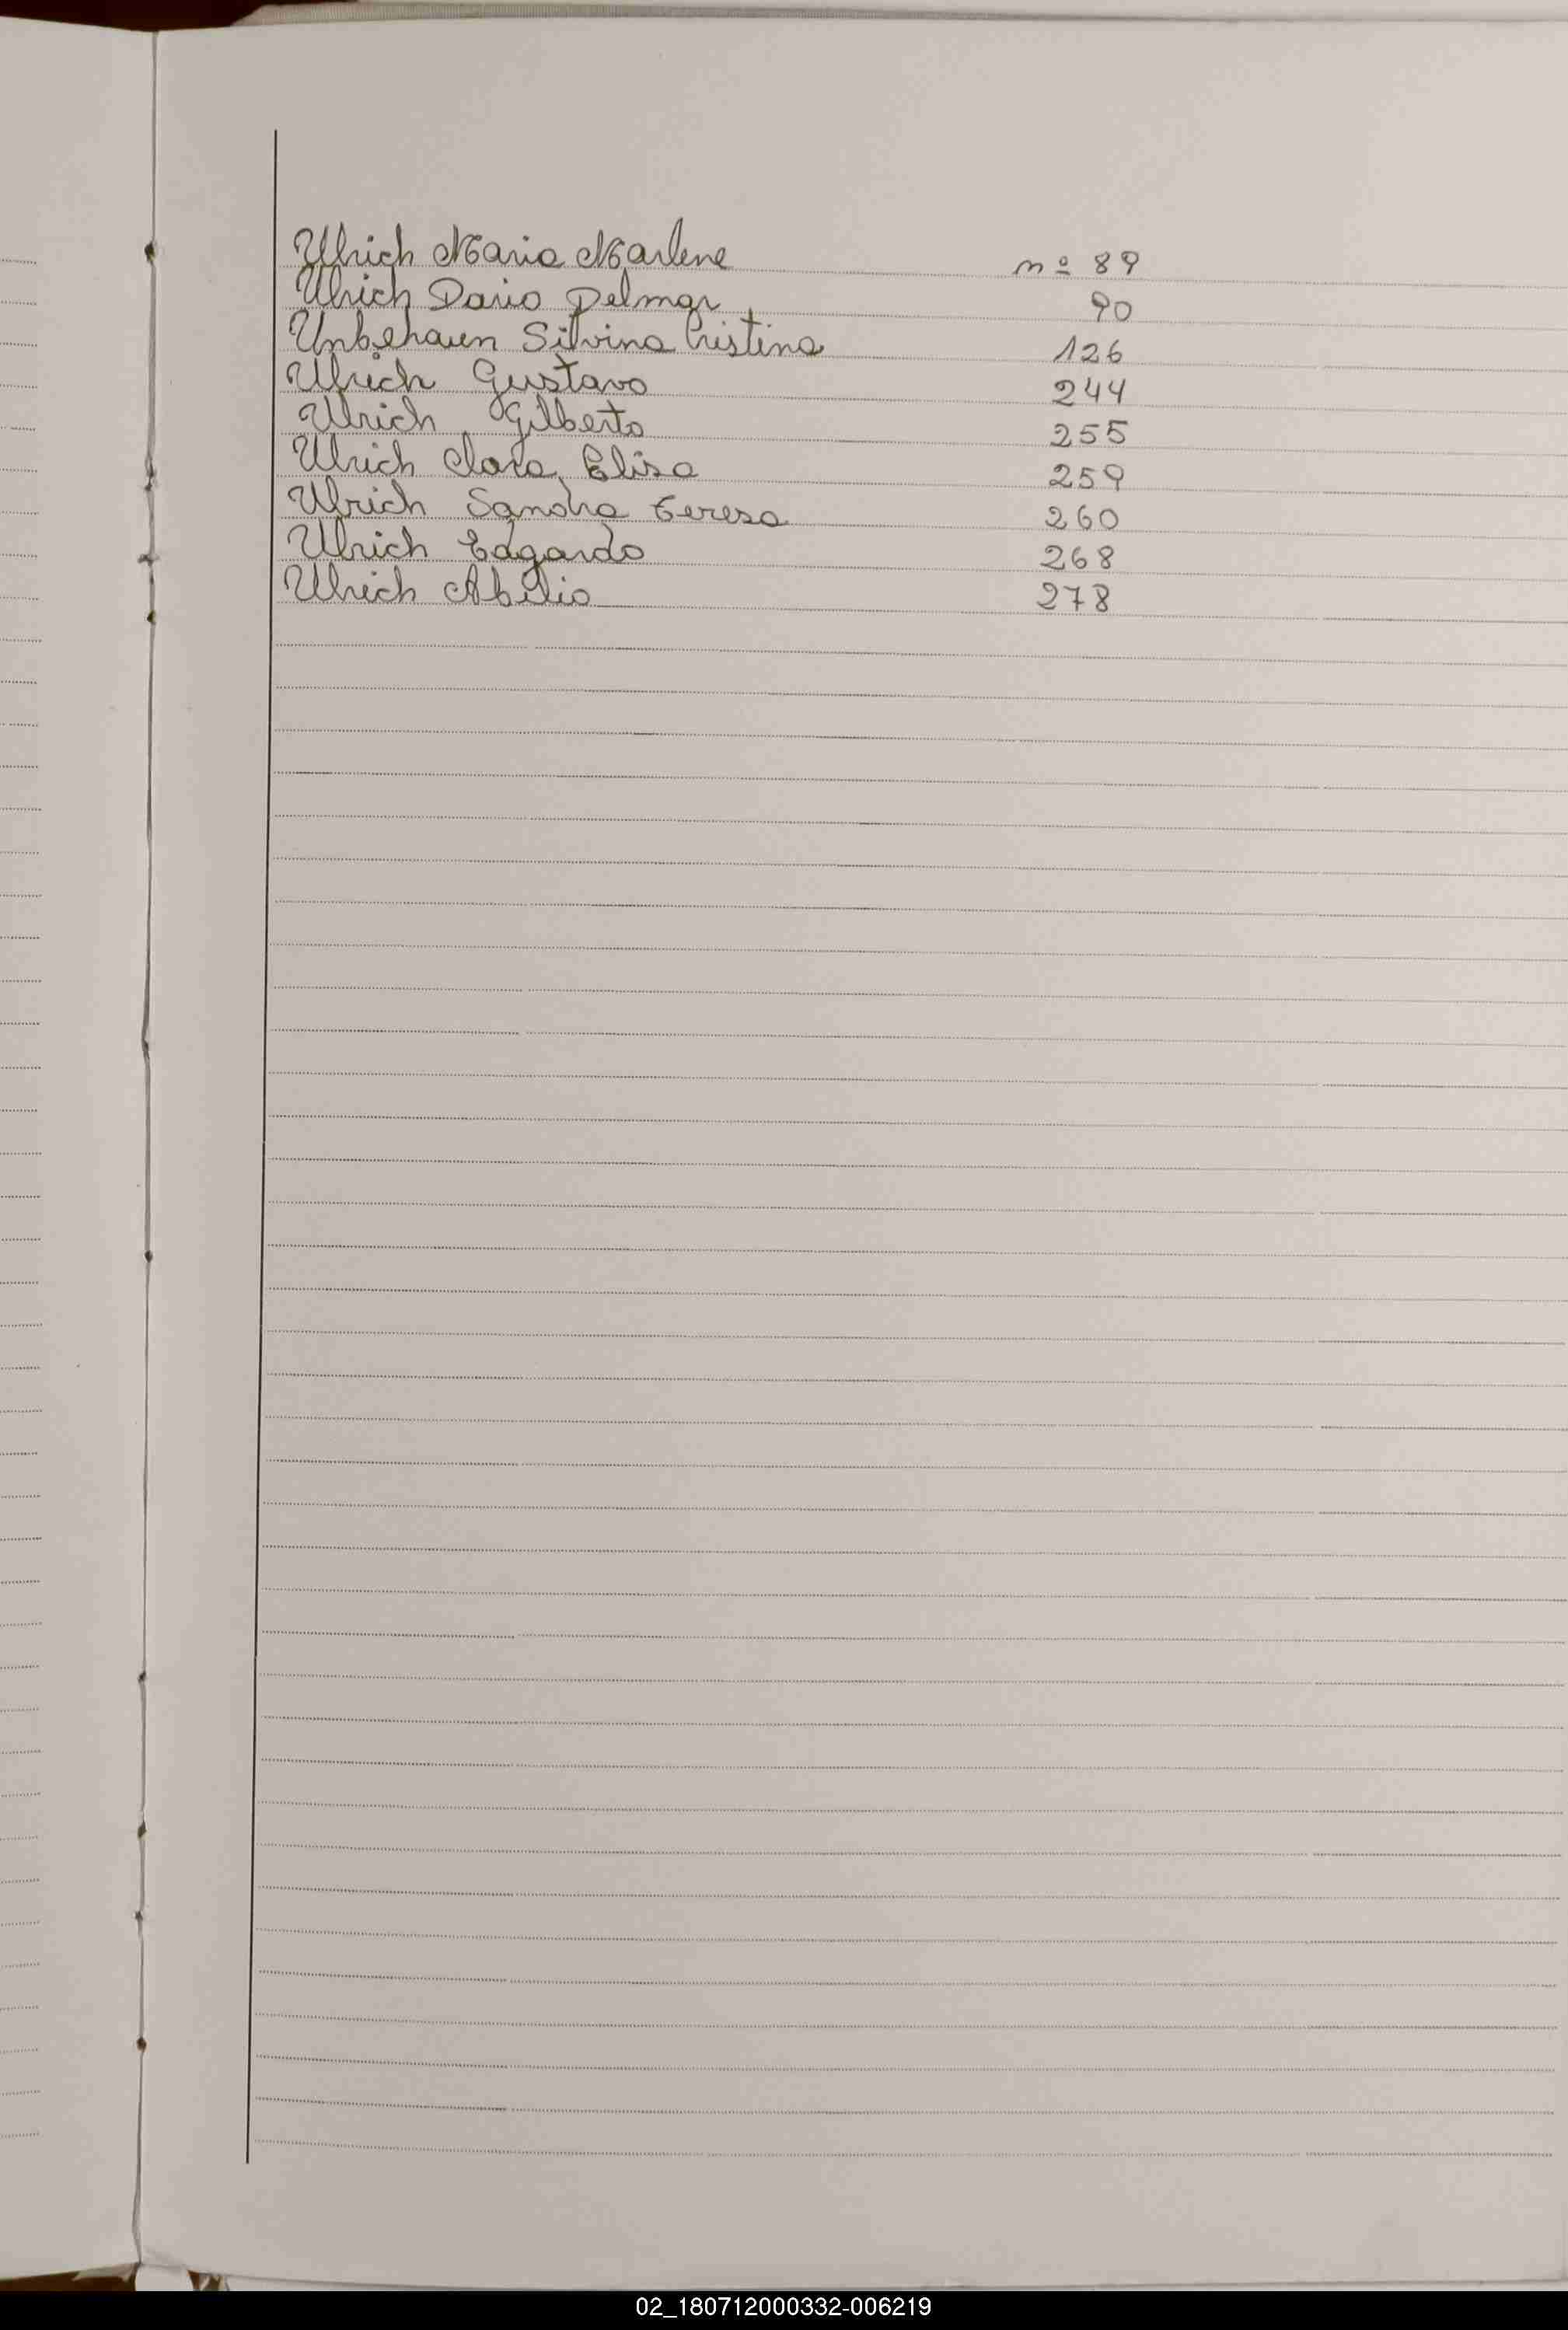 Ulrich Maria Marlene nº 89
Ulrich Dario Delmar 90
Unbehaun Silvina Cristina 126
Ulrich Gustavo 244
Ulrich Gilberto 255
Ulrich Clara Elisa 259
Ulrich Sandra Teresa 260
Ulrich Edgardo 268
Ulrich Abilio 278
02_180712000332-006219